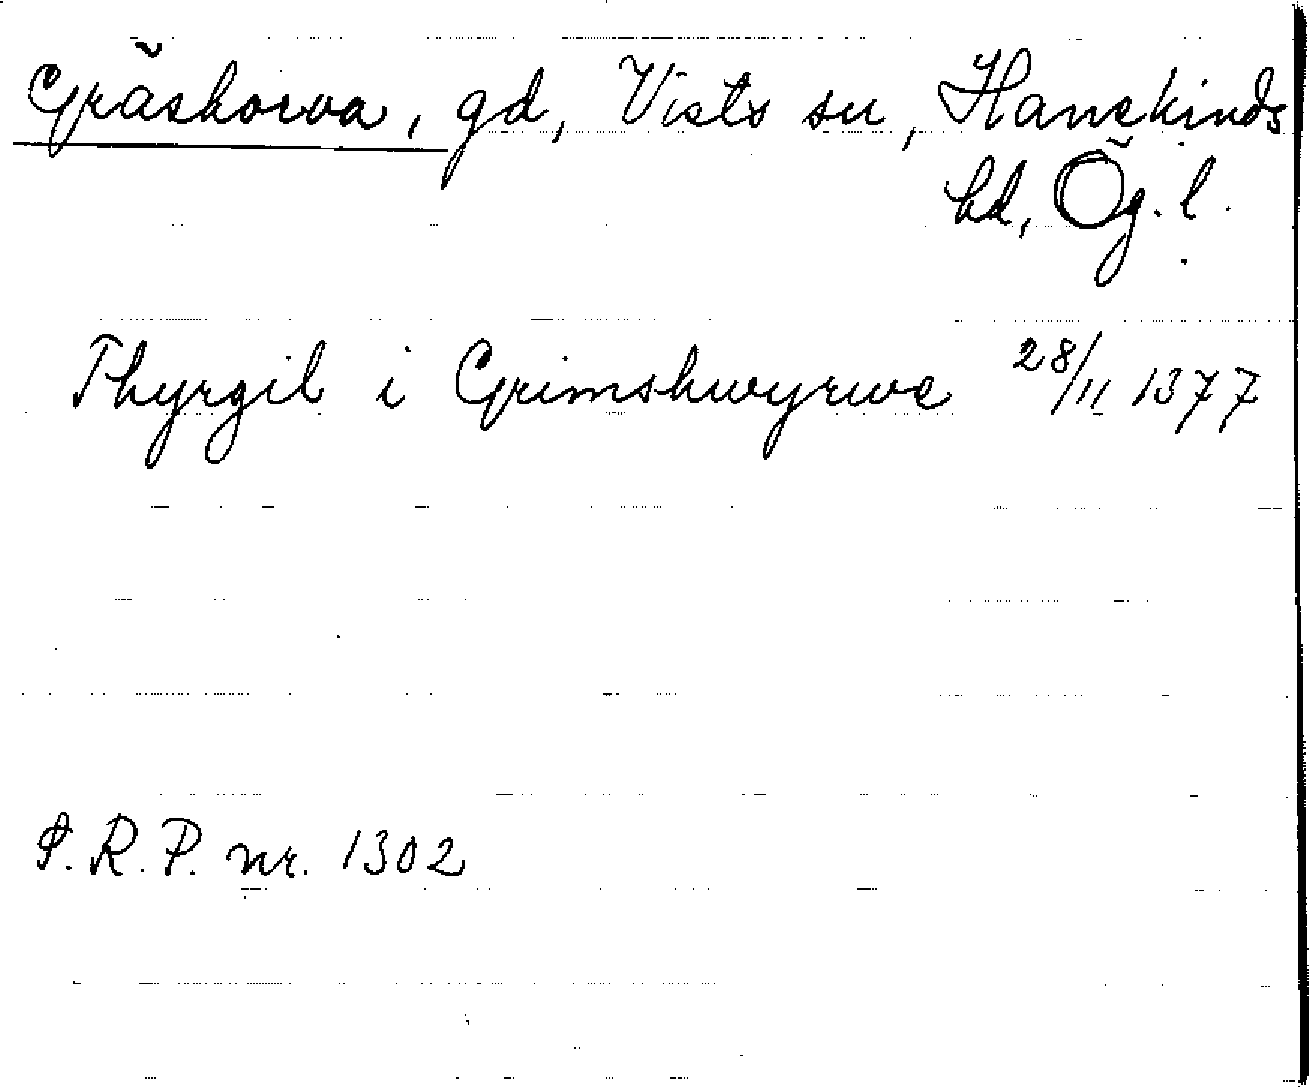 Gräskorva, gd, Vists sn, Hanekinds
hd, Ög. l.
Thyrgil i Grimshwyrwe 28/11 1377
P. R. P. nr. 1302